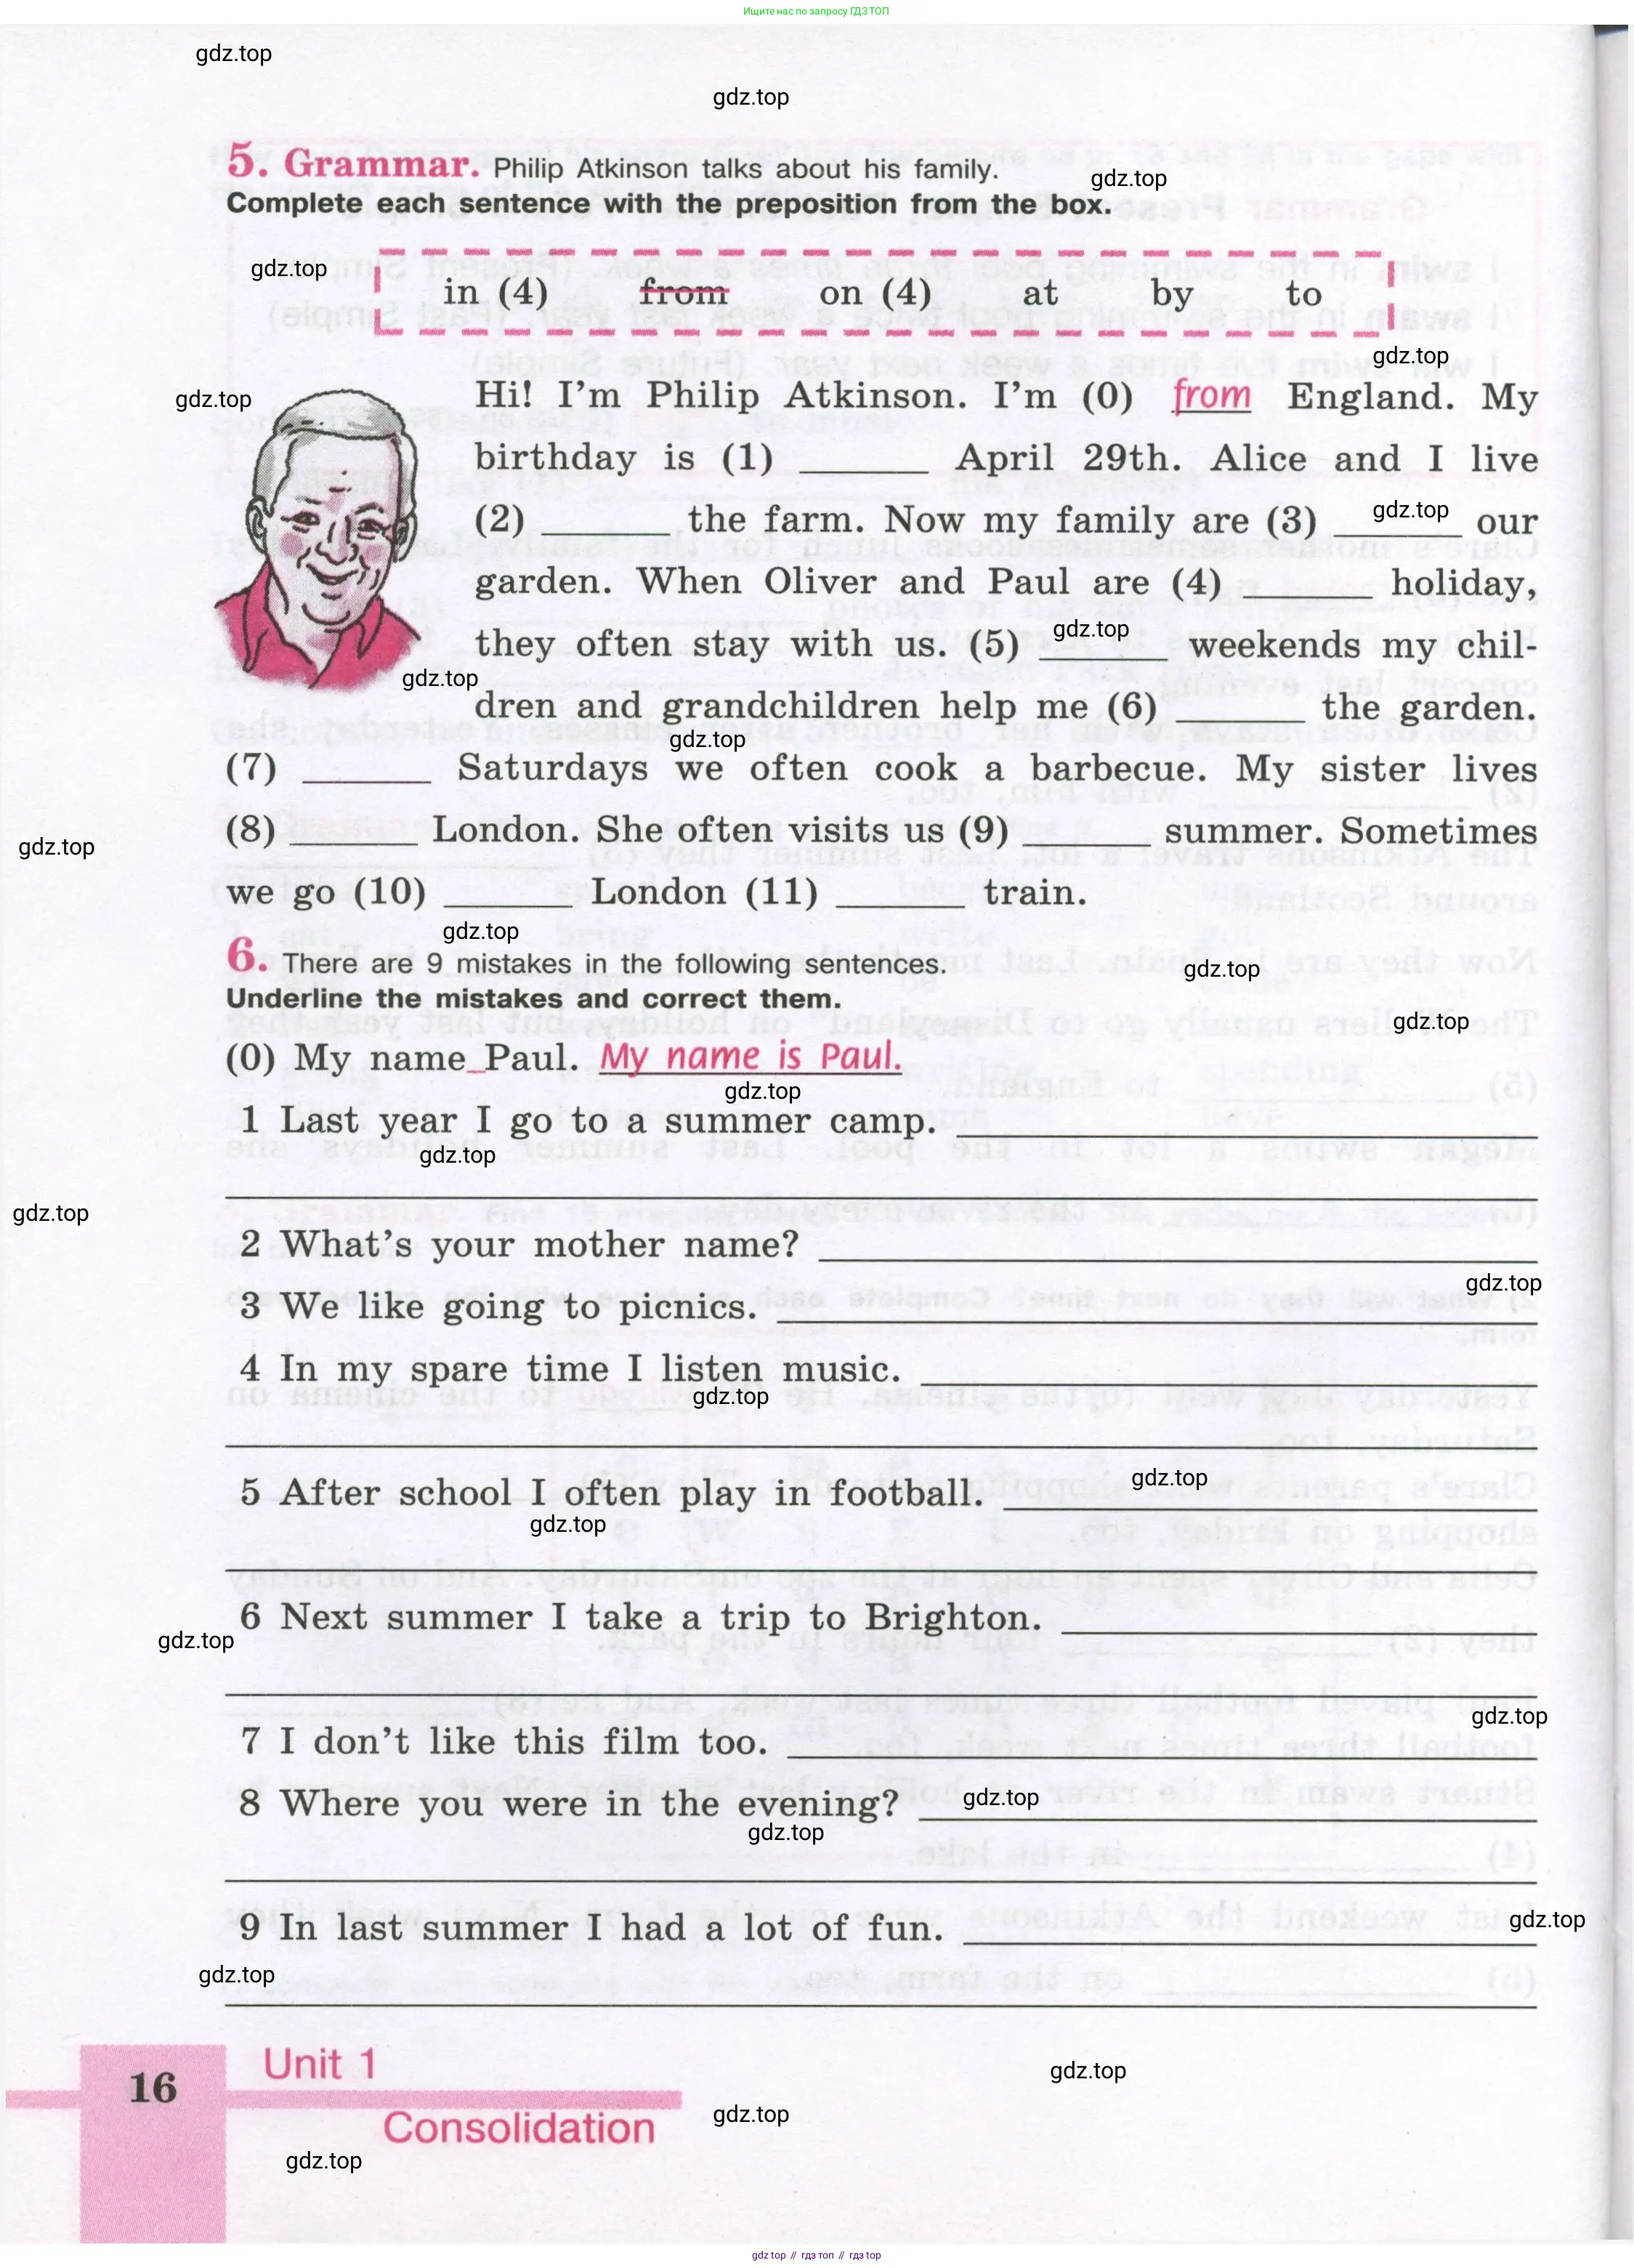 Ищите нас по запросу ГДЗ ТОП
gdz.top
gdz.top
5. Grammar. Philip Atkinson talks about his family.
gdz.top
Complete each sentence with the preposition from the box.
gdz.top
in (4) from on (4) at by to
gdz.top
gdz.top
Hi! I'm Philip Atkinson. I'm (0) from England. My
birthday is (1) ______ April 29th. Alice and I live
(2) ______ the farm. Now my family are (3) ______ our
gdz.top
garden. When Oliver and Paul are (4) ______ holiday,
they often stay with us. (5) ______ weekends my chil-
gdz.top
gdz.top
dren and grandchildren help me (6) ______ the garden.
gdz.top
(7) ______ Saturdays we often cook a barbecue. My sister lives
(8) ______ London. She often visits us (9) ______ summer. Sometimes
gdz.top
we go (10) ______ London (11) ______ train.
gdz.top
6. There are 9 mistakes in the following sentences.
gdz.top
Underline the mistakes and correct them.
gdz.top
(0) My name_Paul. My name is Paul.
gdz.top
1 Last year I go to a summer camp.
gdz.top
gdz.top
2 What's your mother name?
gdz.top
3 We like going to picnics.
4 In my spare time I listen music.
gdz.top
5 After school I often play in football.
gdz.top
gdz.top
6 Next summer I take a trip to Brighton.
gdz.top
gdz.top
7 I don't like this film too.
8 Where you were in the evening?
gdz.top
gdz.top
9 In last summer I had a lot of fun.
gdz.top
gdz.top
16
Unit 1
gdz.top
Consolidation
gdz.top
gdz.top
gdz top // гдз топ // гдз top